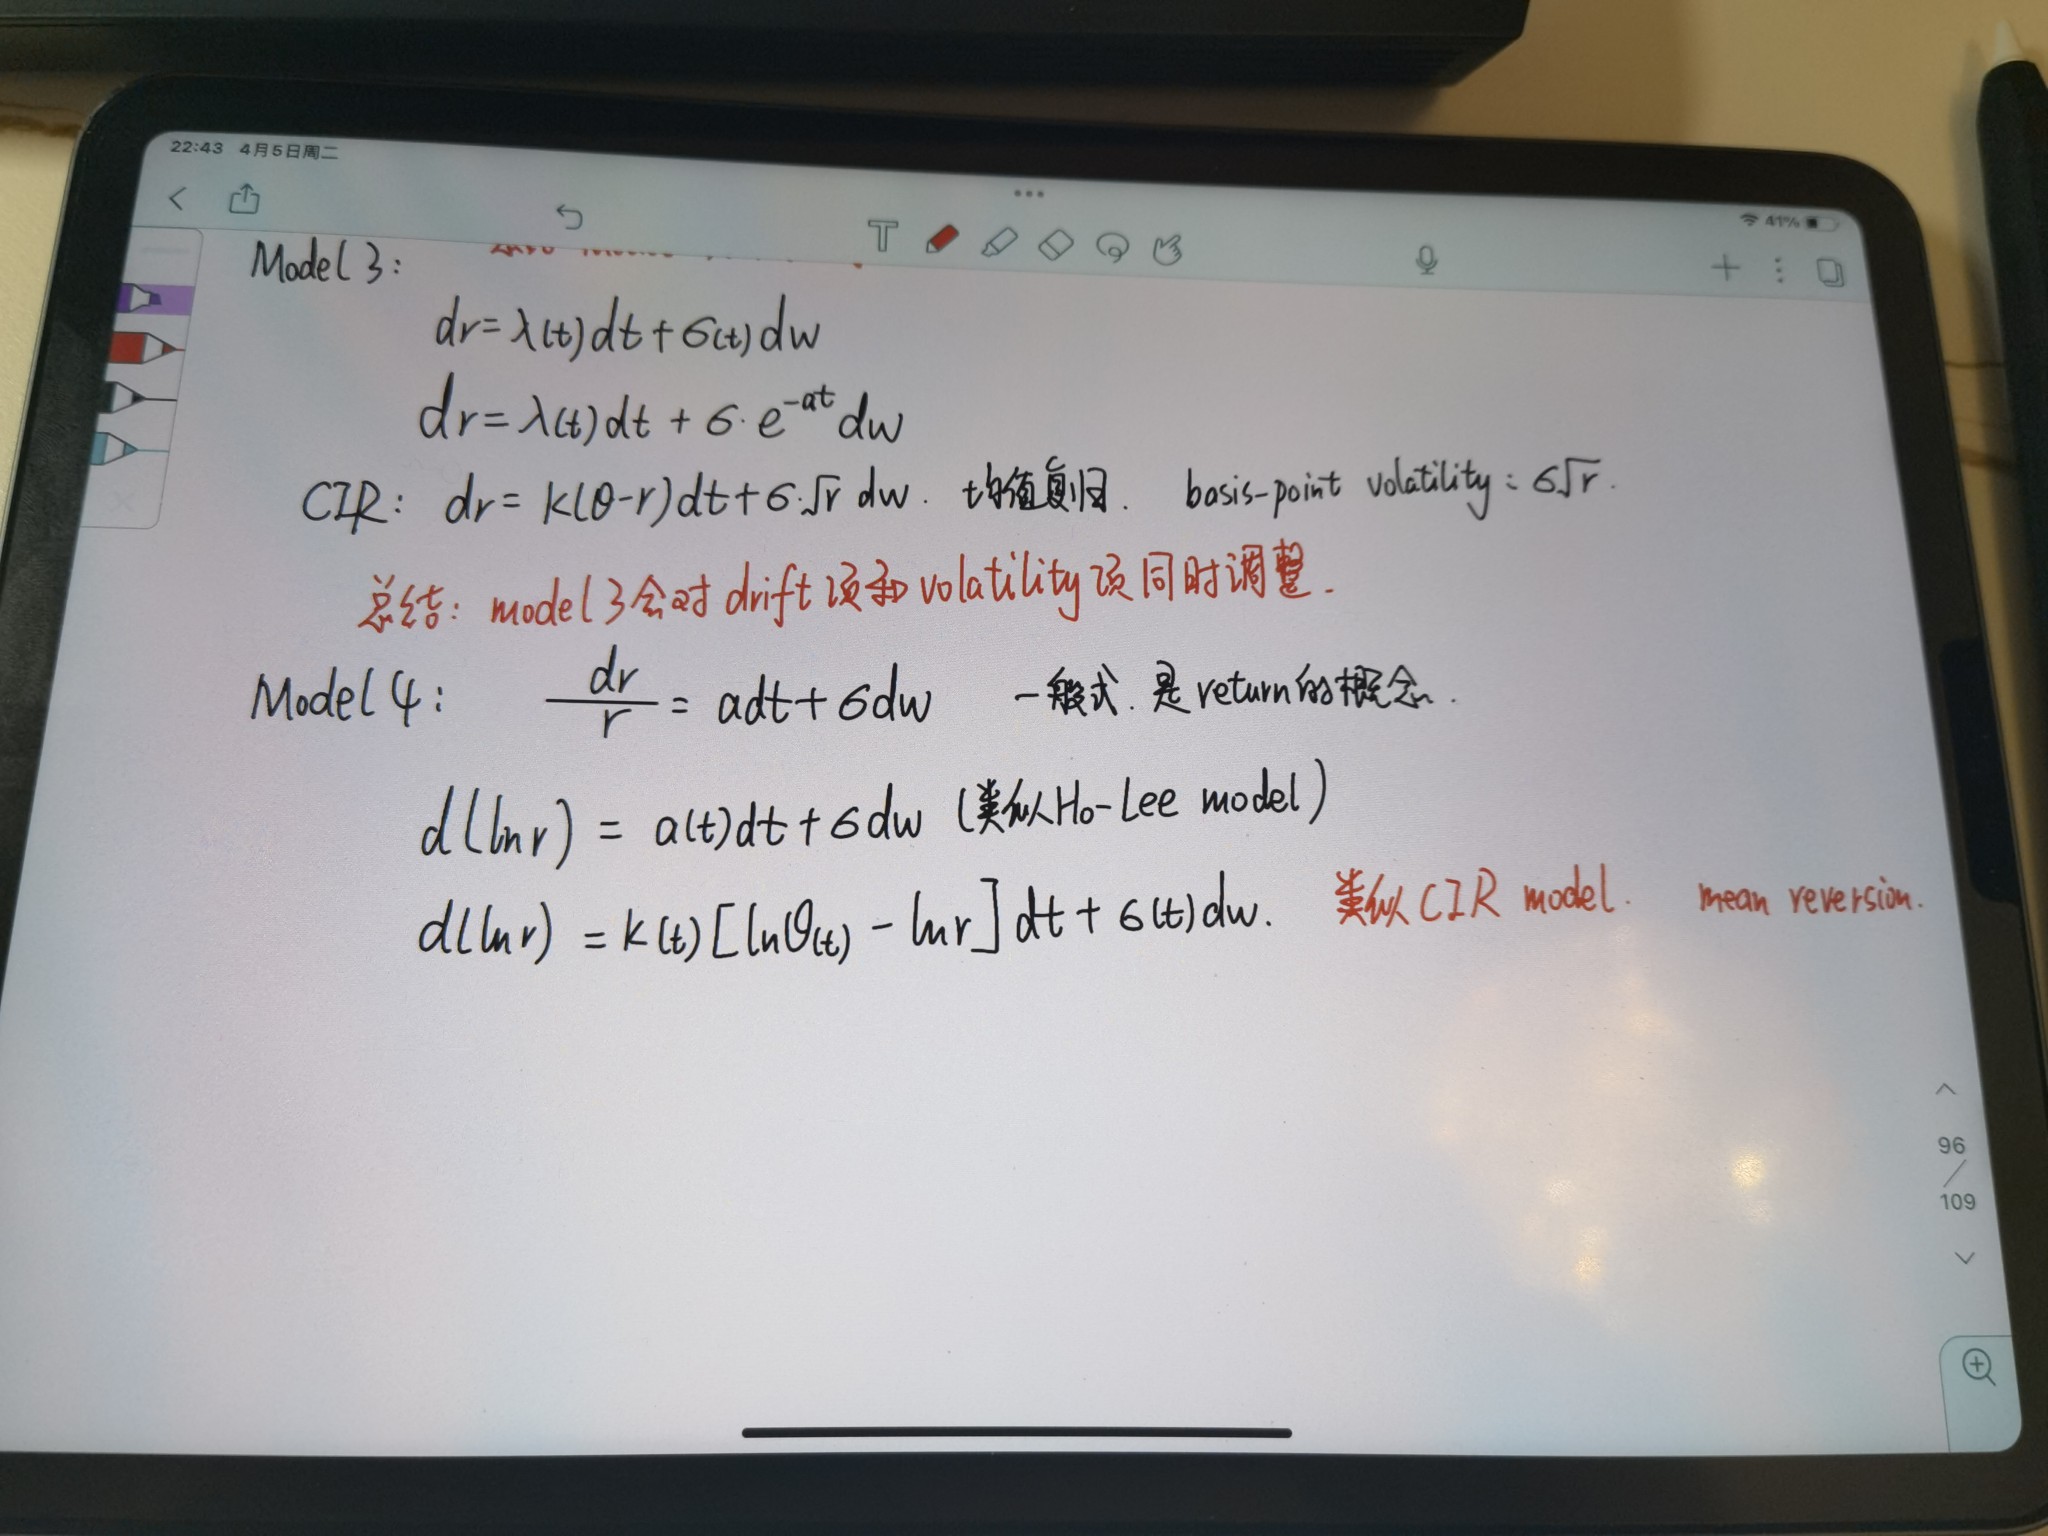 22:43 4月5日周二
41%
T
Model 3:
dr=λ(t)dt+σ(t)dw
dr=λ(t)dt+σ·e^{-at}dw
CIR: dr=k(θ-r)dt+σ·√r dw. 均值复归. basis-point volatility: σ√r.
总结: model 3会对drift项和volatility项同时调整.
Model 4: dr/r = adt+σdw 一般式. 是return的概念.
d(lnr) = a(t)dt+σdw (类似Ho-Lee model)
d(lnr) = k(t)[lnθ(t) - lnr]dt+σ(t)dw. 类似CIR model. mean reversion.
96
109